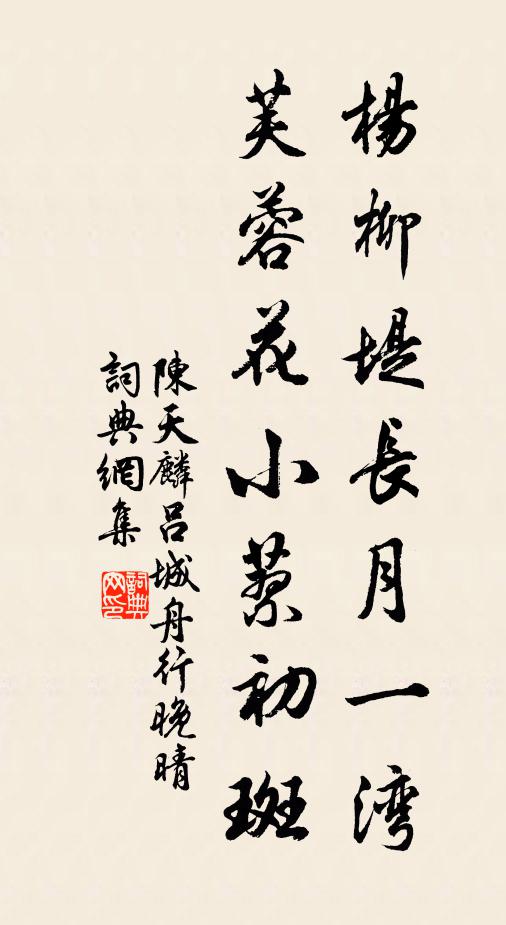 楊柳堤長月一湾
芙蓉花小蘂初斑
陳天麟吕城舟行晚晴
詞典網集
詞典网印